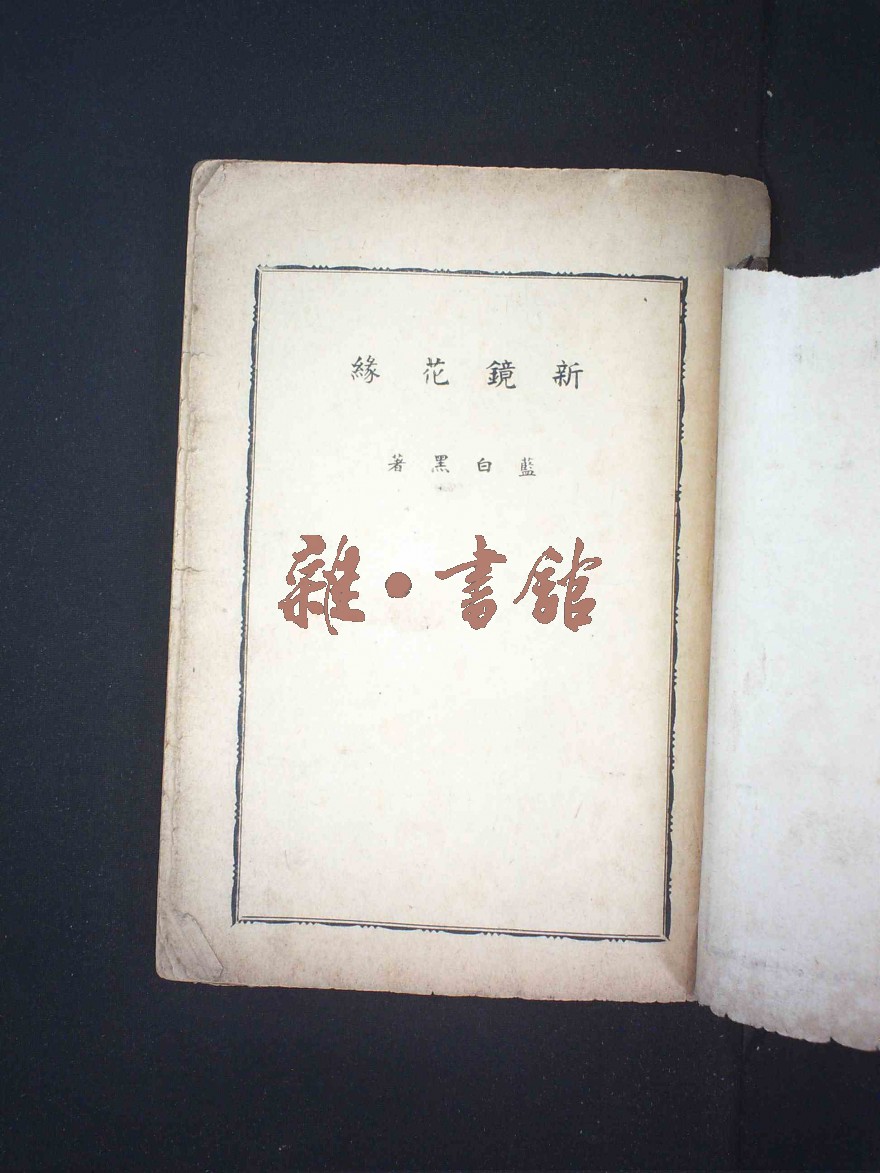 新鏡花緣
藍白黑著
雜·書館